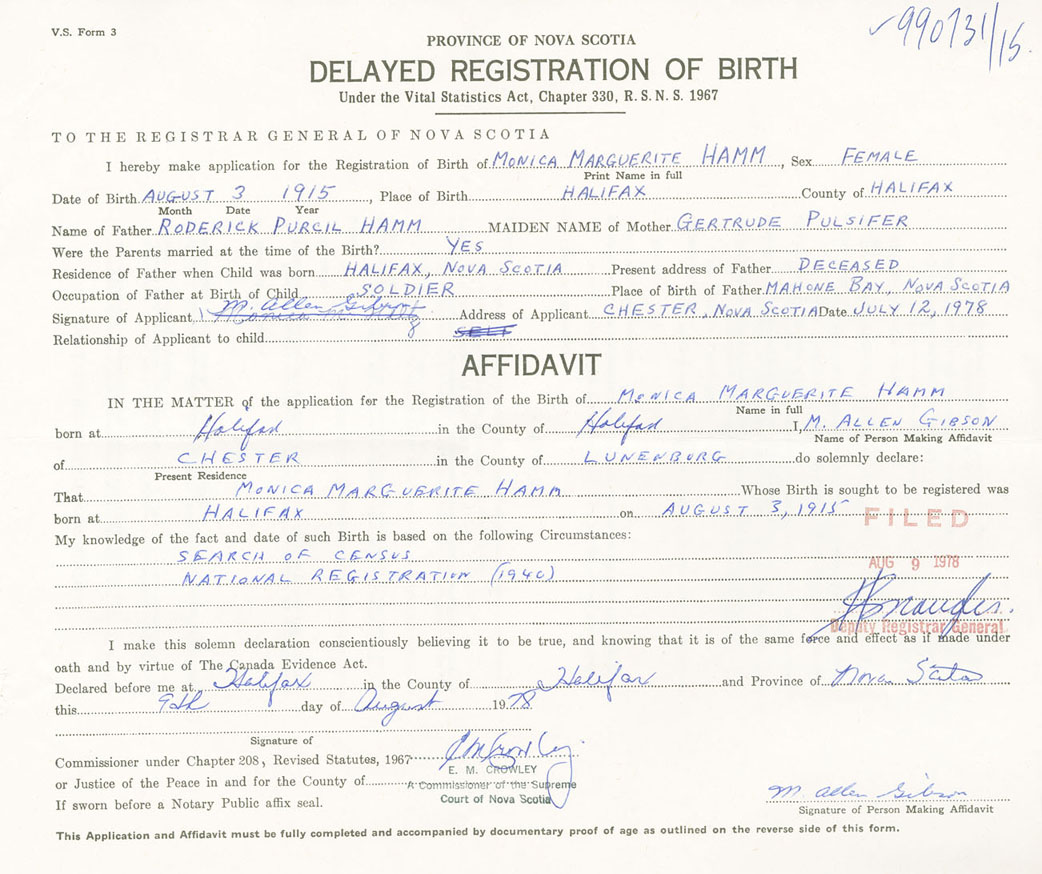 V.S. Form 3
990731/15.
PROVINCE OF NOVA SCOTIA
DELAYED REGISTRATION OF BIRTH
Under the Vital Statistics Act, Chapter 330, R. S. N. S. 1967
TO THE REGISTRAR GENERAL OF NOVA SCOTIA
I hereby make application for the Registration of Birth of MONICA MARGUERITE HAMM, Sex FEMALE
Print Name in full
Date of Birth AUGUST 3 1915, Place of Birth HALIFAX County of HALIFAX
Month Date Year
Name of Father RODERICK PURCIL HAMM MAIDEN NAME of Mother GERTRUDE PULSIFER
Were the Parents married at the time of the Birth? YES
Residence of Father when Child was born HALIFAX, NOVA SCOTIA Present address of Father DECEASED
Occupation of Father at Birth of Child SOLDIER Place of Birth of Father MAHONE BAY, NOVA SCOTIA
Signature of Applicant M. Allen Gibson Address of Applicant CHESTER, NOVA SCOTIA Date JULY 12, 1978
Relationship of Applicant to child SELF
AFFIDAVIT
IN THE MATTER of the application for the Registration of the Birth of MONICA MARGUERITE HAMM
Name in full
born at Halifax in the County of Halifax I, M. ALLEN GIBSON
Name of Person Making Affidavit
of CHESTER in the County of LUNENBURG do solemnly declare:
Present Residence
That MONICA MARGUERITE HAMM Whose Birth is sought to be registered was
born at HALIFAX on AUGUST 3, 1915
FILED
My knowledge of the fact and date of such Birth is based on the following Circumstances:
SEARCH OF CENSUS
AUG 9 1978
NATIONAL REGISTRATION (1940)
Deputy Registrar General
I make this solemn declaration conscientiously believing it to be true, and knowing that it is of the same force and effect as if made under
oath and by virtue of The Canada Evidence Act.
Declared before me at Halifax in the County of Halifax and Province of Nova Scotia
this 9th day of August 1978
Signature of
Commissioner under Chapter 208, Revised Statutes, 1967
E. M. CROWLEY
or Justice of the Peace in and for the County of
A Commissioner of the Supreme
Court of Nova Scotia
If sworn before a Notary Public affix seal.
M. Allen Gibson
Signature of Person Making Affidavit
This Application and Affidavit must be fully completed and accompanied by documentary proof of age as outlined on the reverse side of this form.